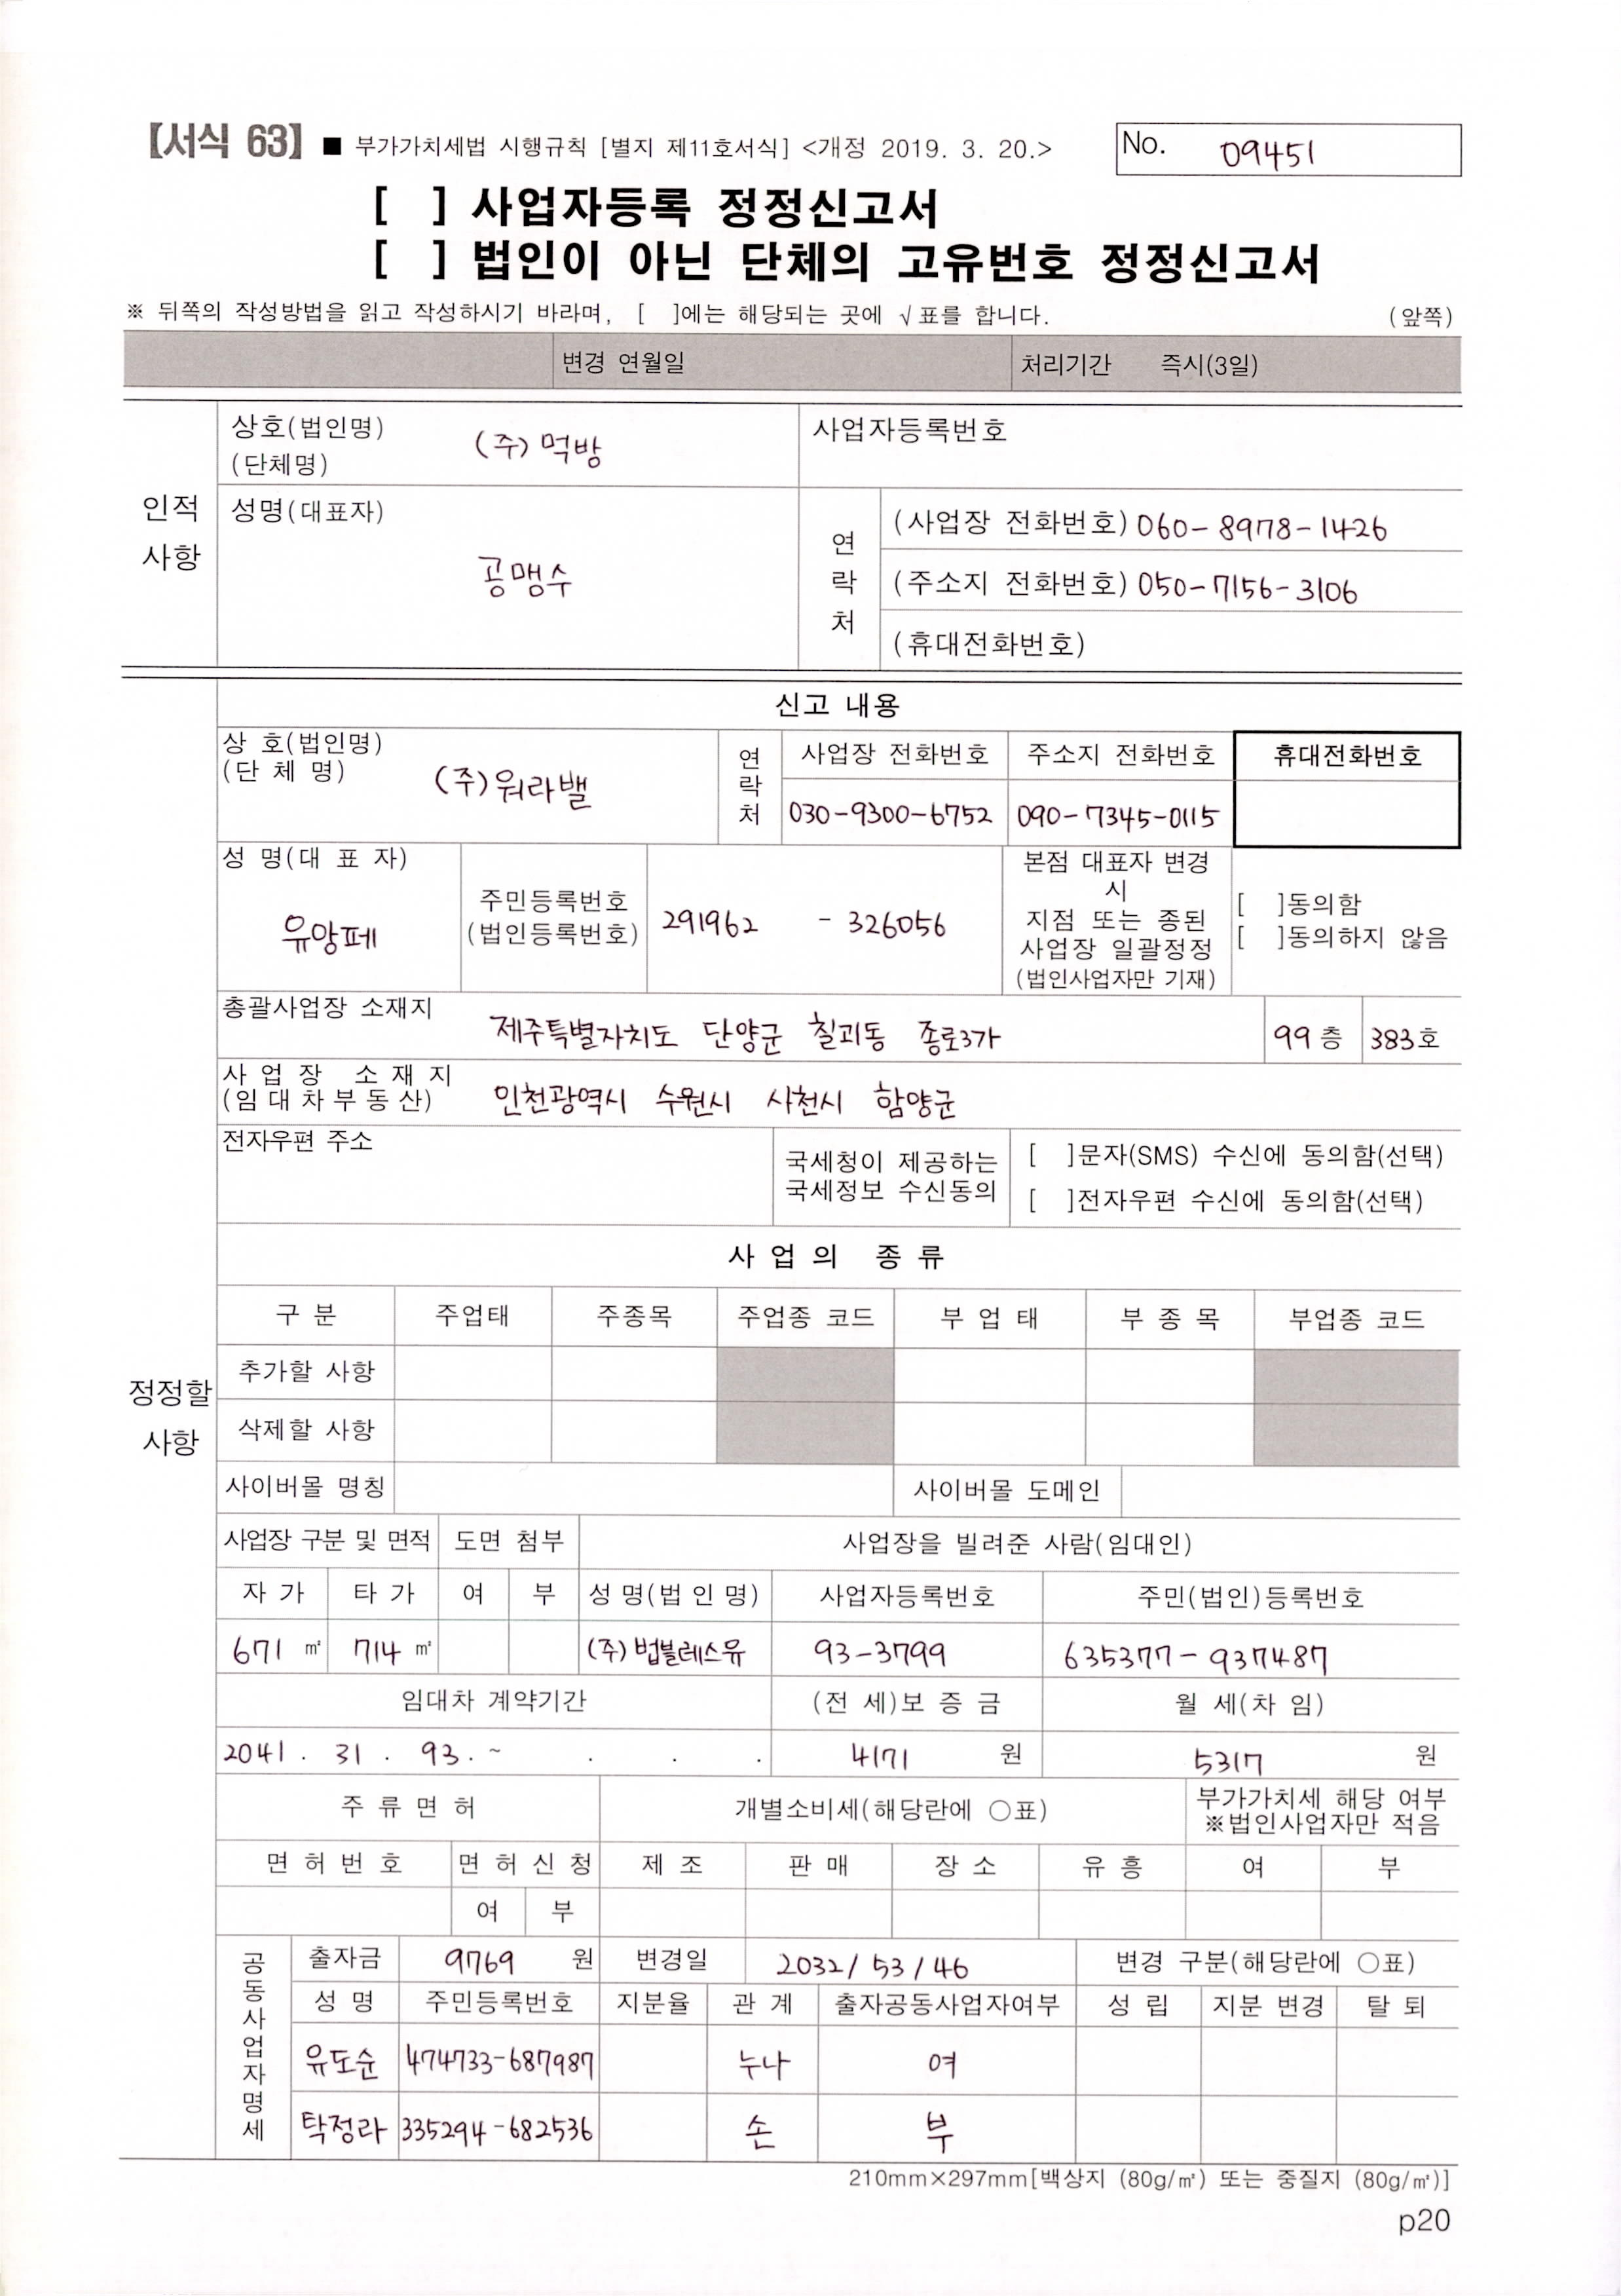 【서식 63】 ■ 부가가치세법 시행규칙 [별지 제11호서식] <개정 2019. 3. 20.>
No. 09451
[ ] 사업자등록 정정신고서
[ ] 법인이 아닌 단체의 고유번호 정정신고서
※ 뒤쪽의 작성방법을 읽고 작성하시기 바라며, [ ]에는 해당되는 곳에 √표를 합니다. (앞쪽)
변경 연월일 처리기간 즉시(3일)
인적 사항
상호(법인명) (단체명) (주)먹방
사업자등록번호
성명(대표자) 공맹수
연락처
(사업장 전화번호) 060-8978-1426
(주소지 전화번호) 050-7156-3106
(휴대전화번호)
정정할 사항
신고 내용
상 호(법인명) (단 체 명) (주)워라밸
연락처
사업장 전화번호 주소지 전화번호 휴대전화번호
030-9300-6752 090-7345-0115
성 명(대 표 자) 유앙페
주민등록번호 (법인등록번호) 291962 - 326056
본점 대표자 변경
시
지점 또는 종된
사업장 일괄정정
(법인사업자만 기재)
[ ]동의함
[ ]동의하지 않음
총괄사업장 소재지 제주특별자치도 단양군 칠괴동 종로3가 99층 383호
사 업 장 소 재 지 (임 대 차 부 동 산) 인천광역시 수원시 사천시 함양군
전자우편 주소
국세청이 제공하는
국세정보 수신동의
[ ]문자(SMS) 수신에 동의함(선택)
[ ]전자우편 수신에 동의함(선택)
사 업 의 종 류
구 분 주업태 주종목 주업종 코드 부 업 태 부 종 목 부업종 코드
추가할 사항
삭제할 사항
사이버몰 명칭 사이버몰 도메인
사업장 구분 및 면적 도면 첨부 사업장을 빌려준 사람(임대인)
자 가 타 가 여 부 성 명(법 인 명) 사업자등록번호 주민(법인)등록번호
671 ㎡ 714 ㎡ (주)법블레스유 93-3799 635377-937487
임대차 계약기간 (전 세)보 증 금 월 세(차 임)
2041 . 31 . 93 . ~ . . . 4171 원 5317 원
주 류 면 허 개별소비세(해당란에 ○표) 부가가치세 해당 여부
※법인사업자만 적음
면 허 번 호 면 허 신 청 제 조 판 매 장 소 유 흥 여 부
여 부
공동사업자명세
출자금 9769 원 변경일 2032/53/46 변경 구분(해당란에 ○표)
성 명 주민등록번호 지분율 관 계 출자공동사업자여부 성 립 지분 변경 탈 퇴
유도순 474733-687987 누나 여
탁정라 335294-682536 손 부
210mm×297mm[백상지 (80g/㎡) 또는 중질지 (80g/㎡)]
p20